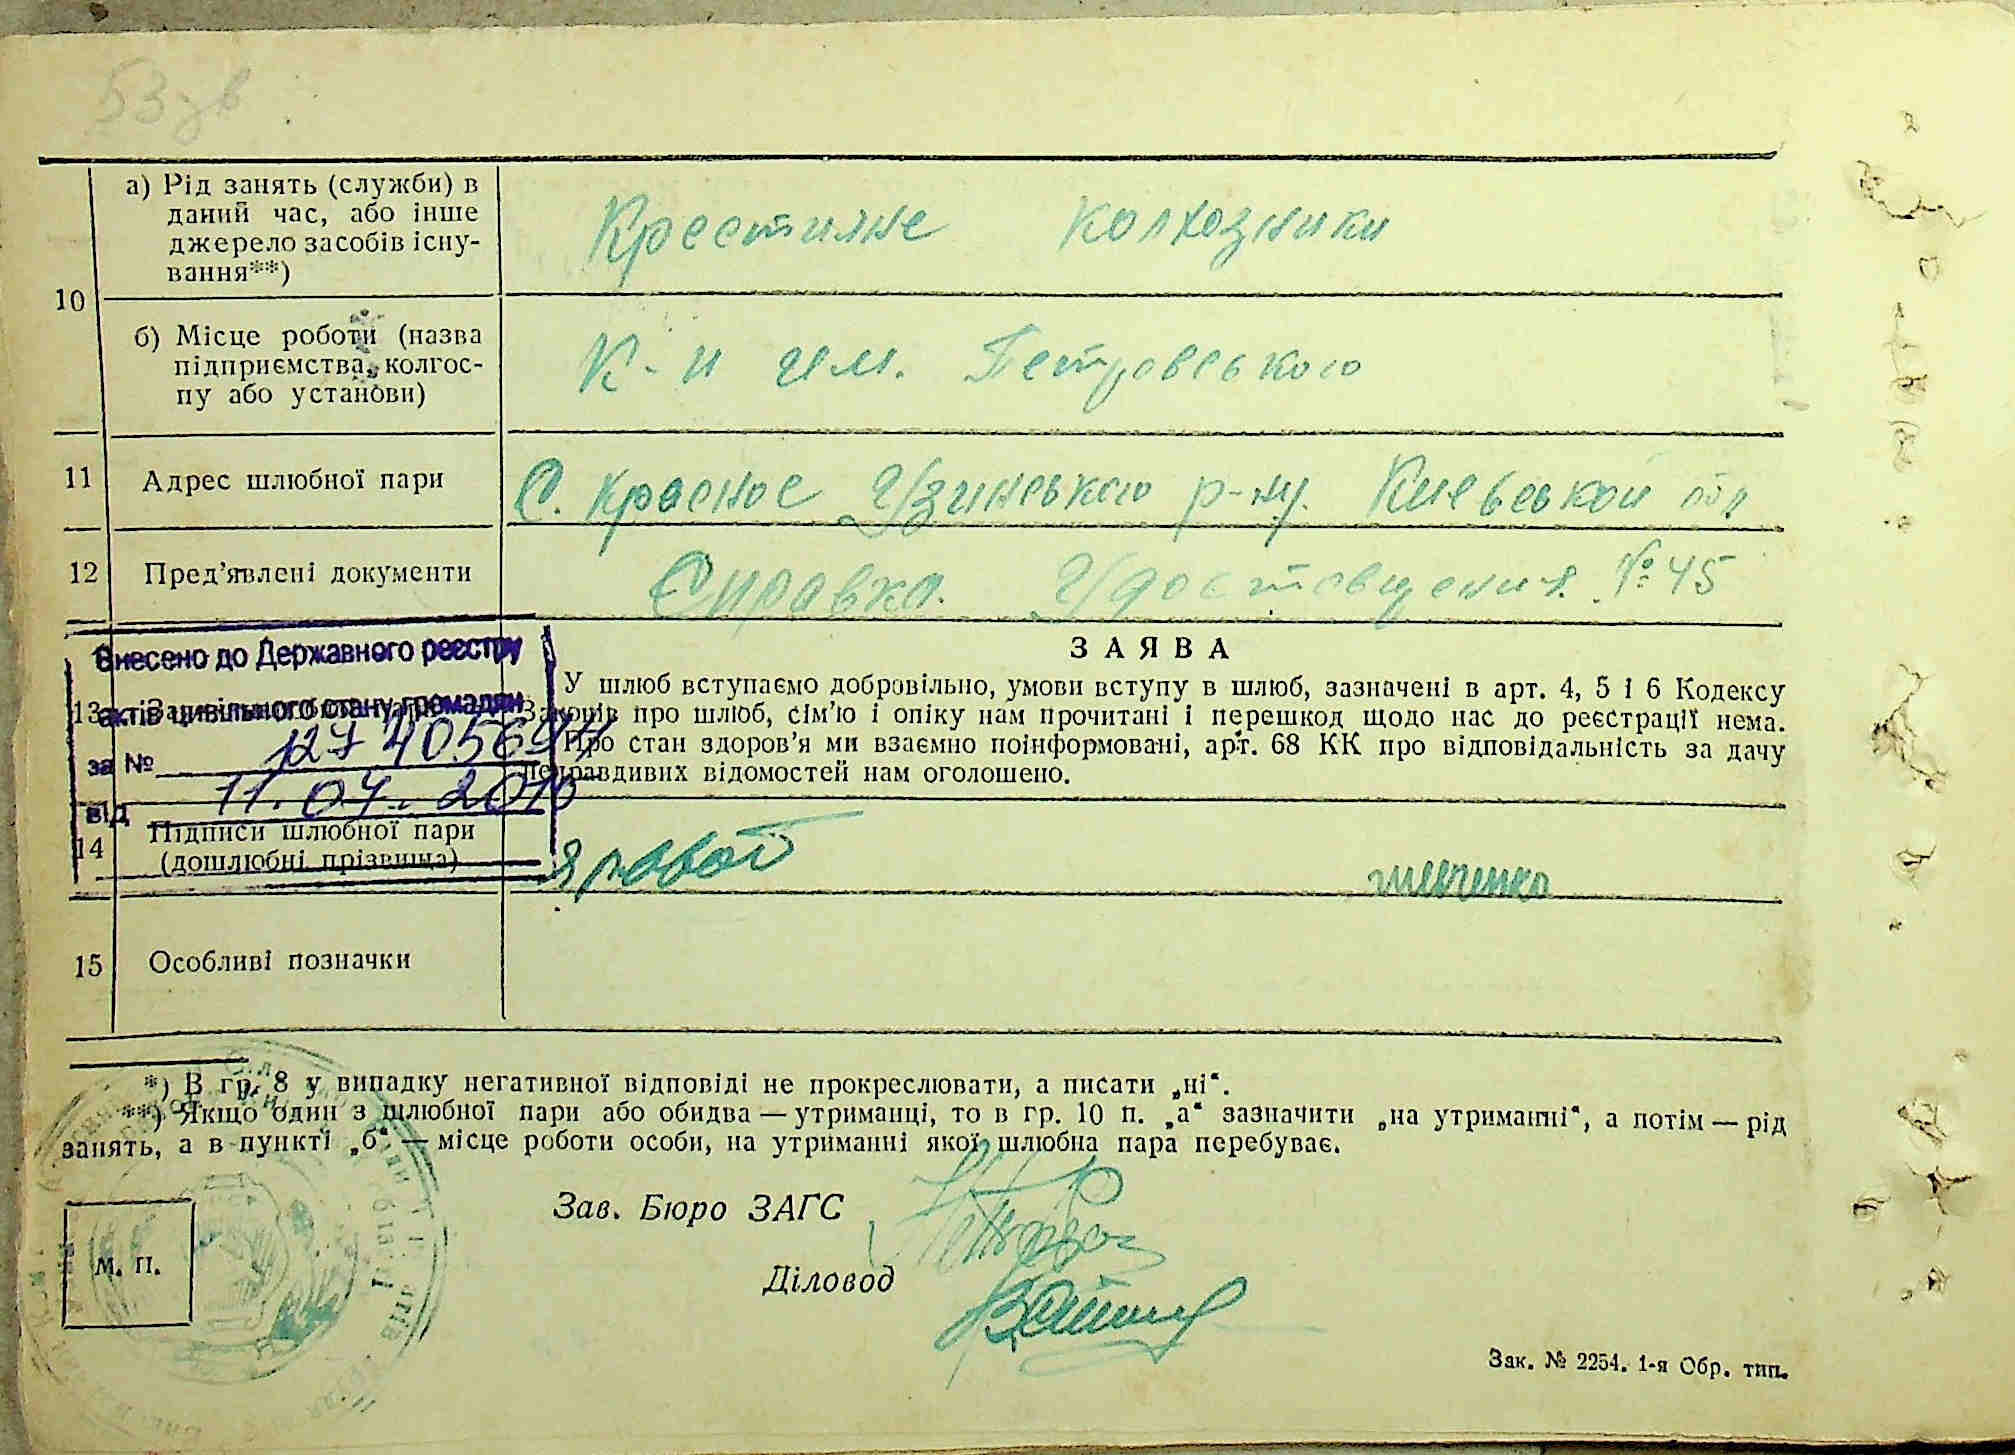 53 зв
10
а) Рід занять (служби) в
даний час, або інше
джерело засобів існу-
вання**)
Крестияне колхозники
б) Місце роботи (назва
підприємства, колгос-
пу або установи)
К-п им. Петровського
11
Адрес шлюбної пари
С. Красное Узинського р-ну. Киевськой обл
12
Пред'явлені документи
Справка. Удостовщения. № 45
Внесено до Державного реєстру
актів цивільного стану громадян
за № 127405694
від 11.04.2010
13
ЗАЯВА
У шлюб вступаємо добровільно, умови вступу в шлюб, зазначені в арт. 4, 5 і 6 Кодексу
Законів про шлюб, сім'ю і опіку нам прочитані і перешкод щодо нас до реєстрації нема.
Про стан здоров'я ми взаємно поінформовані, арт. 68 КК про відповідальність за дачу
неправдивих відомостей нам оголошено.
14
Підписи шлюбної пари
(дошлюбні прізвища)
15
Особливі позначки
*) В гр. 8 у випадку негативної відповіді не прокреслювати, а писати „ні“.
**) Якщо один з шлюбної пари або обидва — утриманці, то в гр. 10 п. „а“ зазначити „на утриманні“, а потім — рід
занять, а в пункті „б“ — місце роботи особи, на утриманні якої шлюбна пара перебуває.
Зав. Бюро ЗАГС
М. П.
Діловод
Зак. № 2254. 1-я Обр. тип.